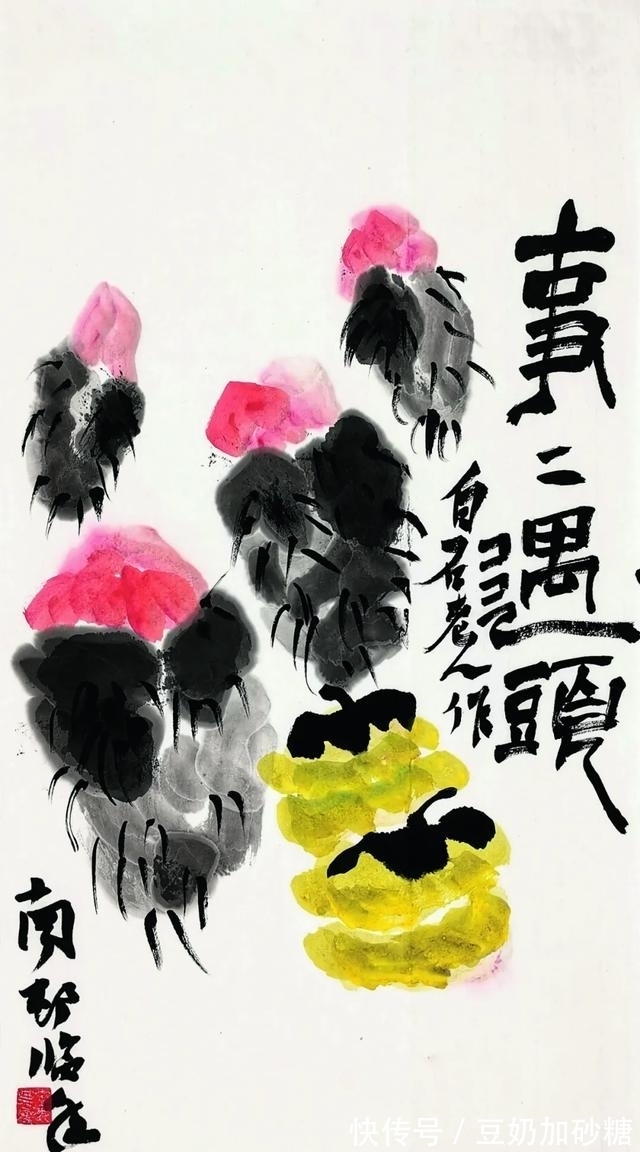 事二遇頭
白石老人作
南邨临
快传号 / 豆奶加砂糖